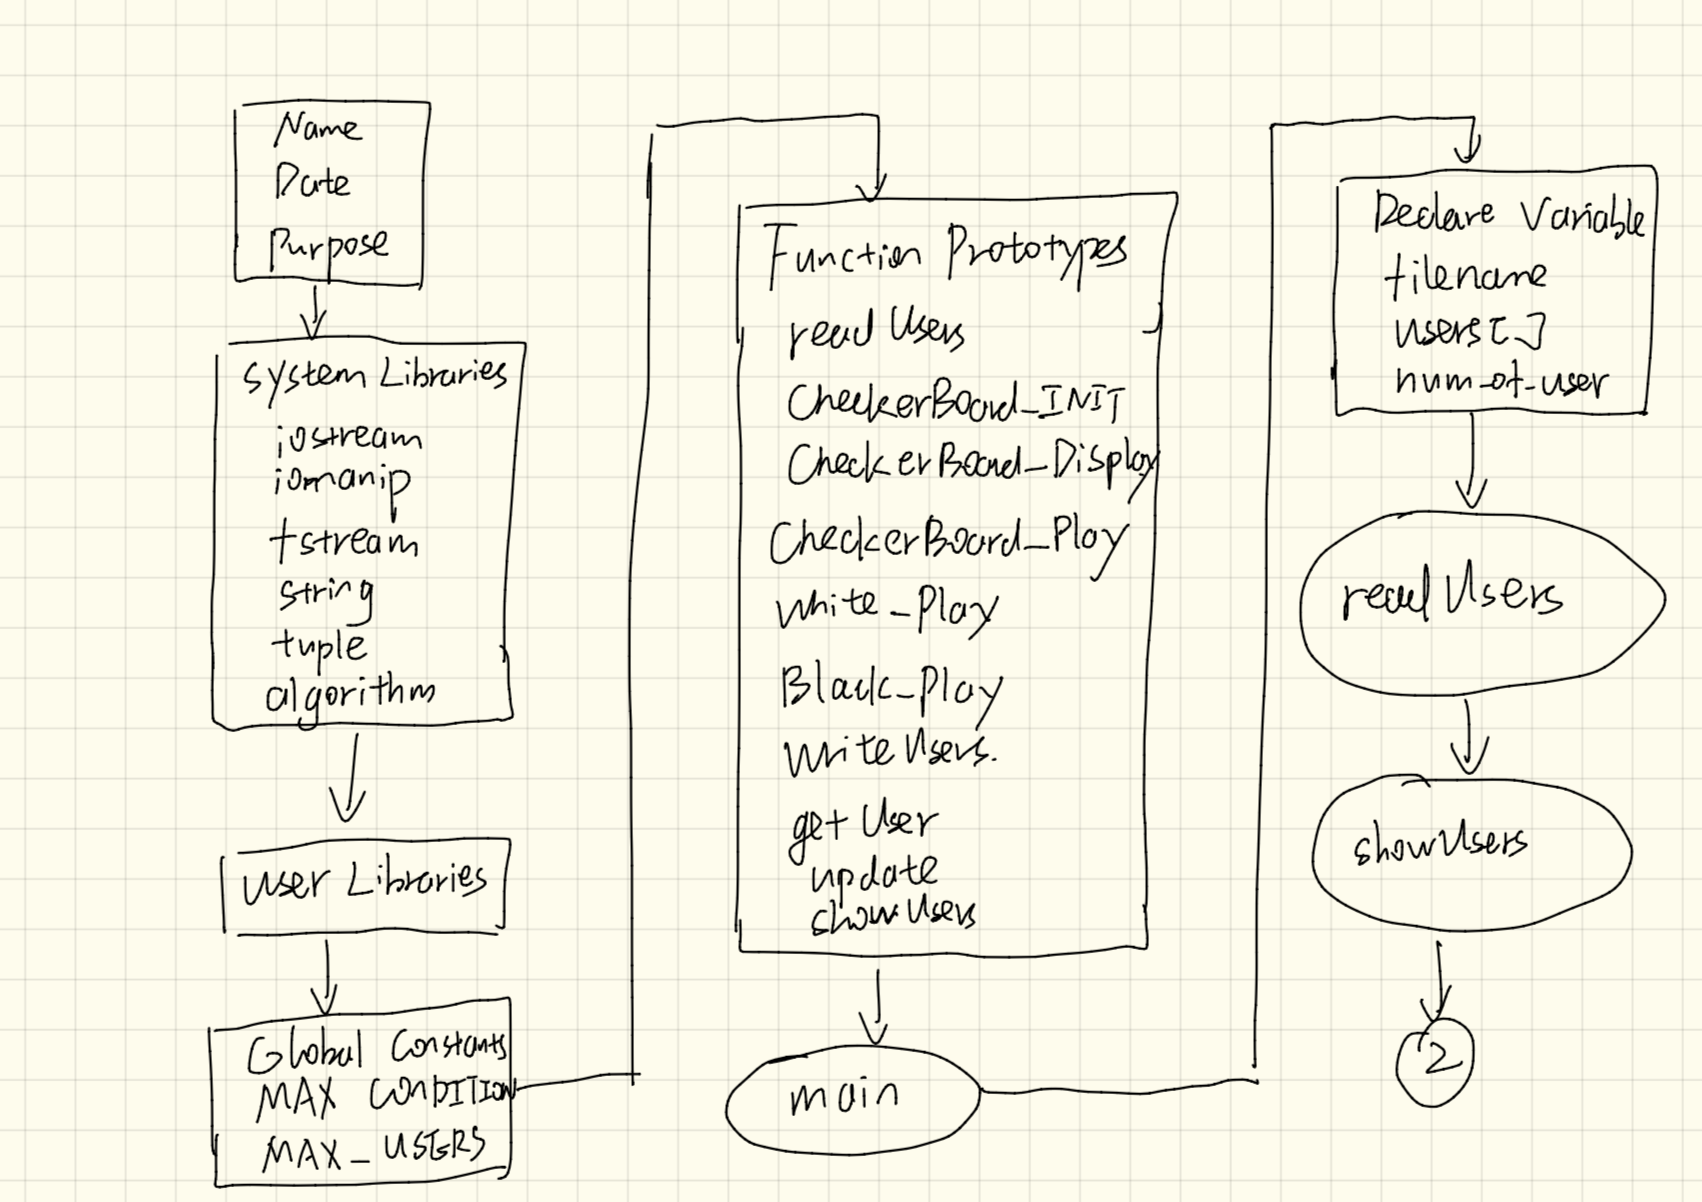 Name
Date
Purpose
System Libraries
iostream
iomanip
fstream
string
tuple
algorithm
User Libraries
Global Constants
MAX CONDITION
MAX_USERS
Function Prototypes
read Users
CheckerBoard_INIT
CheckerBoard_Display
CheckerBoard_Play
White_Play
Black_Play
Write Users.
get User
update
show Users
main
Declare Variable
filename
users[]
num_of_user
read Users
showUsers
2